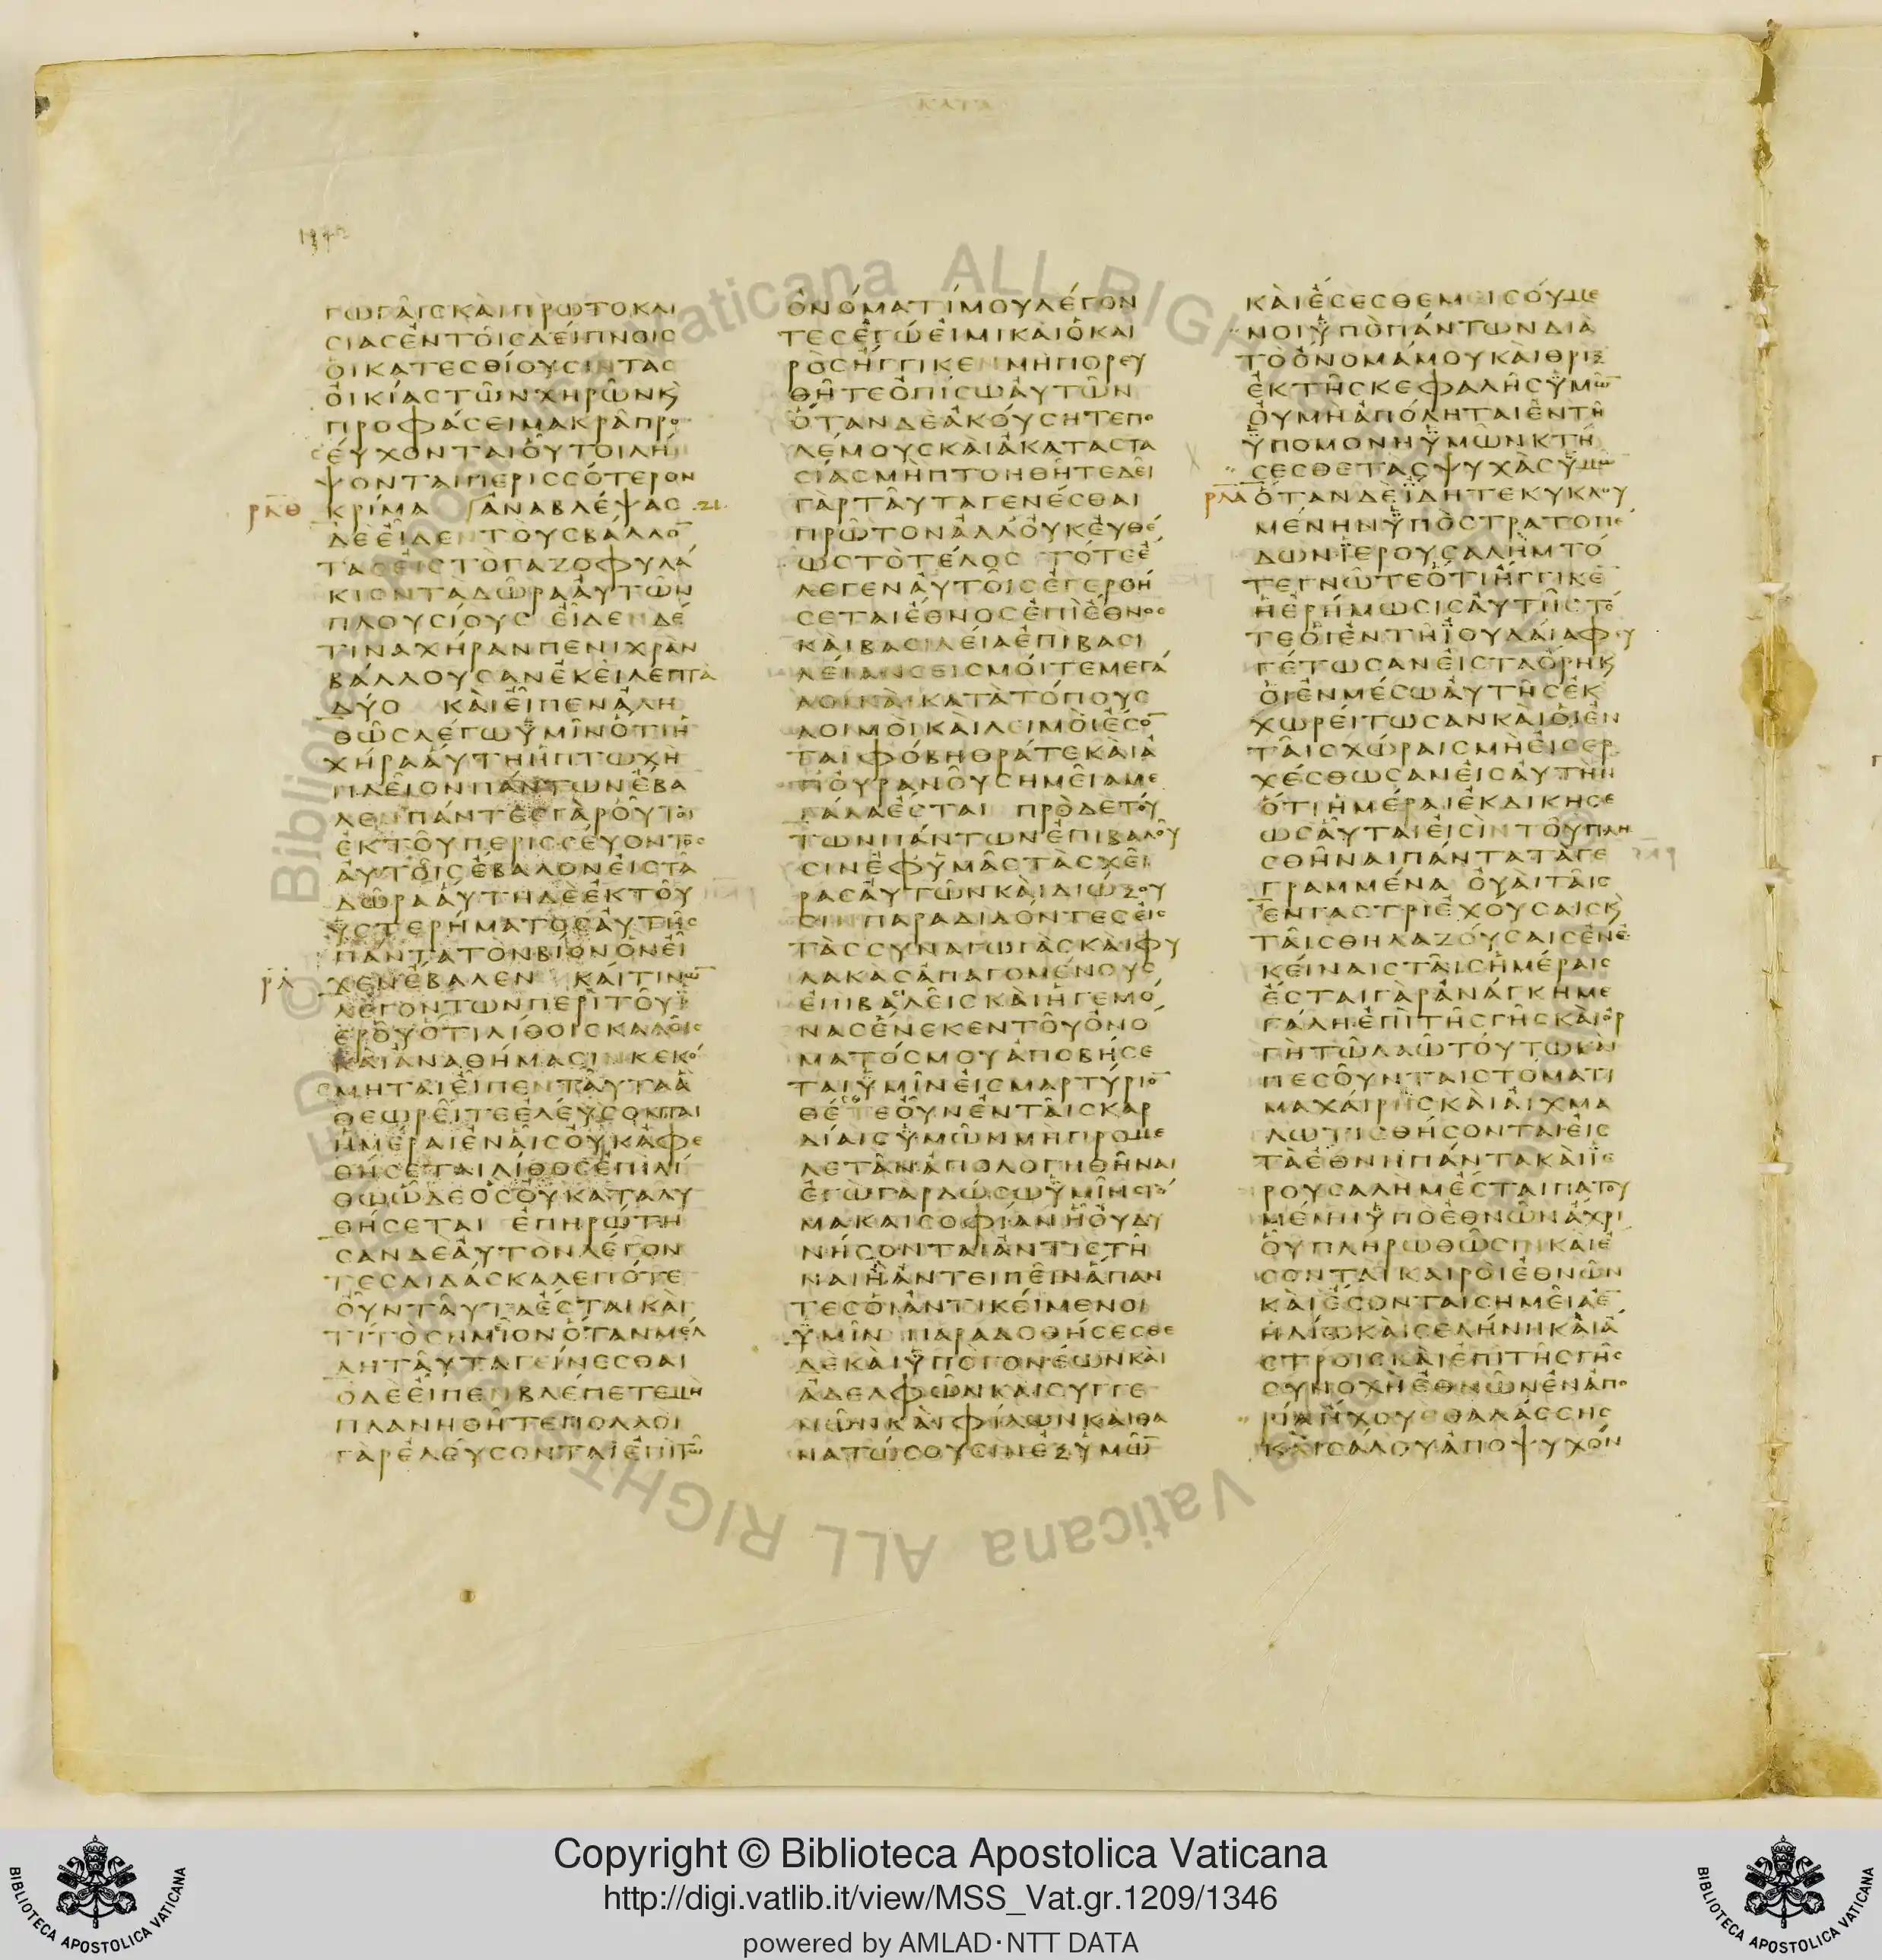 ΚΑΤΑ
1342
ΓΩΓΑῖΣ ΚΑὶ ΠΡΩΤΟΚΛΙ
ΣΙΑΣ ἐΝ ΤΟῖΣ ΔΕίΠΝΟΙΣ
Οἳ ΚΑΤΕΣΘίΟΥΣΙΝ ΤΑΣ
ΟἰΚίΑΣ ΤῶΝ ΧΗΡῶΝ Κ
ΠΡΟΦάΣΕΙ ΜΑΚΡᾶ ΠΡΟ
ΣΕύΧΟΝΤΑΙ ΟὗΤΟΙ ΛΗ
ΨΟΝΤΑΙ ΠΕΡΙΣΣόΤΕΡΟΝ
ΡΚΘ ΚΡίΜΑ ἈΝΑΒΛέΨΑΣ ΚΑ
ΔΕ ΕἶΔΕΝ ΤΟὺΣ ΒΑΛΛΟ
ΤΑΣ ΕἰΣ Τὸ ΓΑΖΟΦΥΛΑ
ΚΙΟΝ Τὰ ΔῶΡΑ ΑὐΤῶΝ
ΠΛΟΥΣίΟΥΣ ΕἶΔΕΝ ΔΕ
ΤΙΝΑ ΧήΡΑΝ ΠΕΝΙΧΡὰΝ
ΒάΛΛΟΥΣΑΝ ἐΚΕῖ ΛΕΠΤὰ
ΔΥΟ ΚΑὶ ΕἶΠΕΝ ἀΛΗ
ΘῶΣ ΛέΓΩ ὑΜῖΝ ὅΤΙ Ἡ
ΧήΡΑ ΑὕΤΗ Ἡ ΠΤΩΧὴ
ΠΛΕῖΟΝ ΠάΝΤΩΝ ἔΒΑ
ΛΕΝ ΠάΝΤΕΣ ΓὰΡ ΟὗΤΟΙ
ἐΚ ΤΟῦ ΠΕΡΙΣΣΕύΟΝΤΟΣ
ΑὐΤΟῖΣ ἔΒΑΛΟΝ ΕἰΣ Τὰ
ΔῶΡΑ ΑὕΤΗ Δὲ ἐΚ ΤΟῦ
ὑΣΤΕΡήΜΑΤΟΣ ΑὐΤῆΣ
ΠΑΝΤΑ ΤὸΝ ΒίΟΝ ὃΝ Εἶ
ΡΛ ΧΕΝ ἔΒΑΛΕΝ ΚΑί ΤΙΝΩ
ΛΕΓόΝΤΩΝ ΠΕΡὶ ΤΟῦ ἱ
ΕΡΟῦ ὅΤΙ ΛίΘΟΙΣ ΚΑΛΟῖΣ
ΚΑὶ ἀΝΑΘήΜΑΣΙΝ ΚΕΚό
ΣΜΗΤΑΙ ΕἶΠΕΝ ΤΑῦΤΑ ἃ
ΘΕΩΡΕῖΤΕ ἐΛΕύΣΟΝΤΑΙ
ἡΜέΡΑΙ ἐΝ ΑἷΣ ΟὐΚ ἀΦΕ
ΘήΣΕΤΑΙ ΛίΘΟΣ ἐΠὶ Λί
ΘΩ ὧΔΕ ὃΣ ΟὐΚΑΤΑΛΥ
ΘήΣΕΤΑΙ ἐΠΗΡώΤΗ
ΣΑΝ ΔΕ ΑὐΤὸΝ ΛέΓΟΝ
ΤΕΣ ΔΙΔάΣΚΑΛΕ ΠόΤΕ
ΟὖΝ ΤΑῦΤΑ ἔΣΤΑΙ ΚΑὶ
Τί Τὸ ΣΗΜΕῖΟΝ ὅΤΑΝ ΜέΛ
ΛΗ ΤΑῦΤΑ ΓΕίΝΕΣΘΑΙ
Ο ΔΕ ΕἶΠΕΝ ΒΛέΠΕΤΕ Μὴ
ΠΛΑΝΗΘῆΤΕ ΠΟΛΛΟὶ
ΓὰΡ ἐΛΕύΣΟΝΤΑΙ ἐΠὶ ΤΩ
ὈΝόΜΑΤί ΜΟΥ ΛέΓΟΝ
ΤΕΣ ἐΓώ ΕἰΜΙ ΚΑΙ ὁ ΚΑΙ
ΡὸΣ ἤΓΓΙΚΕΝ Μὴ ΠΟΡΕΥ
ΘῆΤΕ ὀΠίΣΩ ΑὐΤῶΝ
ὅΤΑΝ Δὲ ἀΚΟύΣΗΤΕ ΠΟ
ΛέΜΟΥΣ ΚΑὶ ἀΚΑΤΑΣΤΑ
ΣίΑΣ Μὴ ΠΤΟΗΘῆΤΕ ΔΕῖ
ΓὰΡ ΤΑῦΤΑ ΓΕΝέΣΘΑΙ
ΠΡῶΤΟΝ ἀΛΛ ΟὐΚ ΕὐΘέ
ΩΣ Τὸ ΤέΛΟΣ ΤόΤΕ ἔ
ΛΕΓΕΝ ΑὐΤΟῖΣ ἐΓΕΡΘή
ΣΕΤΑΙ ἔΘΝΟΣ ἐΠὶ ἔΘΝΟΣ
ΚΑὶ ΒΑΣΙΛΕίΑ ἐΠΙ ΒΑΣΙ
ΛΕίΑΝ ΣΕΙΣΜΟί ΤΕ ΜΕΓά
ΛΟΙ ΚΑὶ ΚΑΤΑ ΤόΠΟΥΣ
ΛΟΙΜΟὶ ΚΑὶ ΛΕΙΜΟὶ ἔΣΟ
ΤΑΙ ΦόΒΗΘΡά ΤΕ ΚΑὶ ἀ
Π ΟὐΡΑΝΟῦ ΣΗΜΕῖΑ ΜΕ
ΓάΛΑ ἔΣΤΑΙ ΠΡὸ Δὲ ΤΟύ
ΤΩΝ ΠάΝΤΩΝ ἐΠΙΒΑΛΟῦ
ΣΙΝ ἐΦ ὑΜᾶΣ ΤὰΣ ΧΕῖ
ΡΑΣ ΑὐΤῶΝ ΚΑὶ ΔΙώΞΟΥ
ΣΙΝ ΠΑΡΑΔΙΔόΝΤΕΣ ΕἰΣ
ΤὰΣ ΣΥΝΑΓΩΓὰΣ ΚΑὶ ΦΥ
ΛΑΚὰΣ ἀΠΑΓΟΜέΝΟΥΣ
ἐΠΙ ΒΑΣΙΛΕῖΣ ΚΑὶ ἡΓΕΜό
ΝΑΣ ἕΝΕΚΕΝ ΤΟῦ ὀΝό
ΜΑΤόΣ ΜΟΥ ἀΠΟΒήΣΕ
ΤΑΙ ὑΜῖΝ ΕἰΣ ΜΑΡΤύΡΙΟ
ΘέΤΕ ΟὖΝ ἐΝ ΤΑῖΣ ΚΑΡ
ΔίΑΙΣ ὑΜῶΝ Μὴ ΠΡΟΜΕ
ΛΕΤᾶΝ ἀΠΟΛΟΓΗΘῆΝΑΙ
ἐΓὼ ΓὰΡ ΔώΣΩ ὑΜῖΝ ΣΤό
ΜΑ ΚΑΙ ΣΟΦίΑΝ ᾗ Οὐ ΔΥ
ΝήΣΟΝΤΑΙ ἀΝΤΙΣΤῆ
ΝΑΙ ἢ ἀΝΤΕΙΠΕῖΝ ἅΠΑΝ
ΤΕΣ Οἱ ἀΝΤΙΚΕίΜΕΝΟΙ
ὑΜῖΝ ΠΑΡΑΔΟΘήΣΕΣΘΕ
ΔΕ ΚΑὶ ὑΠὸ ΓΟΝέΩΝ ΚΑὶ
ἀΔΕΛΦῶΝ ΚΑὶ ΣΥΓΓΕ
ΝῶΝ ΚΑὶ ΦίΛΩΝ ΚΑὶ ΘΑ
ΝΑΤώΣΟΥΣΙΝ ἐΞ ὑΜΩ
ΚΑὶ ἔΣΕΣΘΕ ΜΕΙΣΟύΜΕ
ΝΟΙ ὑΠὸ ΠάΝΤΩΝ ΔΙὰ
Τὸ ὄΝΟΜά ΜΟΥ ΚΑὶ ΘΡΙΞ
ἐΚ ΤῆΣ ΚΕΦΑΛῆΣ ὑΜΩ
Οὐ Μὴ ἀΠόΛΗΤΑΙ ἐΝ Τῆ
ὑΠΟΜΟΝΗ ὑΜῶΝ ΚΤή
ΣΕΣΘΕ ΤὰΣ ΨΥΧὰΣ ὑΜΩ
ΡΛΑ ὅΤΑΝ Δὲ ἴΔΗΤΕ ΚΥΚΛΟΥ
ΜέΝΗΝ ὑΠὸ ΣΤΡΑΤΟΠέ
ΔΩΝ ἱΕΡΟΥΣΑΛὴΜ Τό
ΤΕ ΓΝῶΤΕ ὅΤΙ ἤΓΓΙΚΕ
Ἡ ἐΡήΜΩΣΙΣ ΑὐΤῆΣ Τό
ΤΕ Οἱ ἐΝ Τῆ ἰΟΥΔΑίΑ ΦΕΥ
ΓέΤΩΣΑΝ ΕἰΣ Τὰ ὄΡΗ Κ
Οἱ ἐΝ ΜέΣΩ ΑὐΤῆΣ ἐΚ
ΧΩΡΕίΤΩΣΑΝ ΚΑὶ Οἱ ἐΝ
ΤΑῖΣ ΧώΡΑΙΣ Μὴ ΕἰΣΕΡ
ΧέΣΘΩΣΑΝ ΕἰΣ ΑὐΤὴΝ
ὅΤΙ ἡΜέΡΑΙ ἐΚΔΙΚΗΣΕ
ΩΣ ΑὗΤΑΙ ΕἰΣὶΝ ΤΟῦ ΠΛΗ
ΣΘῆΝΑΙ ΠάΝΤΑ Τὰ ΓΕ
ΓΡΑΜΜέΝΑ ΟὐΑὶ ΤΑῖΣ
ἐΝ ΓΑΣΤΡὶ ἐΧΟύΣΑΙΣ Κ
ΤΑῖΣ ΘΗΛΑΖΟύΣΑΙΣ ἐΝ ἐ
ΚΕίΝΑΙΣ ΤΑῖΣ ἡΜέΡΑΙΣ
ἔΣΤΑΙ ΓὰΡ ἀΝάΓΚΗ ΜΕ
ΓάΛΗ ἐΠὶ ΤῆΣ ΓῆΣ ΚΑὶ ὀΡ
Γὴ Τῶ ΛΑῶ ΤΟύΤΩ ΚΑΙ
ΠΕΣΟῦΝΤΑΙ ΣΤόΜΑΤΙ
ΜΑΧΑίΡΗΣ ΚΑὶ ΑἰΧΜΑ
ΛΩΤΙΣΘήΣΟΝΤΑΙ ΕἰΣ
Τὰ ἔΘΝΗ ΠάΝΤΑ ΚΑὶ ἱΕ
ΡΟΥΣΑΛΗΜ ἔΣΤΑΙ ΠΑΤΟΥ
ΜέΝΗ ὑΠὸ ἐΘΝῶΝ ἄΧΡΙ
Οὗ ΠΛΗΡΩΘῶΣΙΝ ΚΑὶ ἔ
ΣΟΝΤΑΙ ΚΑΙΡΟὶ ἐΘΝῶΝ
ΚΑὶ ἔΣΟΝΤΑΙ ΣΗΜΕῖΑ ἐ
ἡΛίΩ ΚΑὶ ΣΕΛήΝΗ ΚΑὶ ἄ
ΣΤΡΟΙΣ ΚΑὶ ἐΠὶ ΤῆΣ ΓῆΣ
ΣΥΝΟΧὴ ἐΘΝῶΝ ἐΝ ἀΠΟ
ΡίΑ ἤΧΟΥΣ ΘΑΛάΣΣΗΣ
ΚΑὶ ΣάΛΟΥ ἀΠΟΨΥΧόΝ
Copyright © Biblioteca Apostolica Vaticana
http://digi.vatlib.it/view/MSS_Vat.gr.1209/1346
powered by AMLAD·NTT DATA
BIBLIOTECA APOSTOLICA VATICANA
BIBLIOTECA APOSTOLICA VATICANA